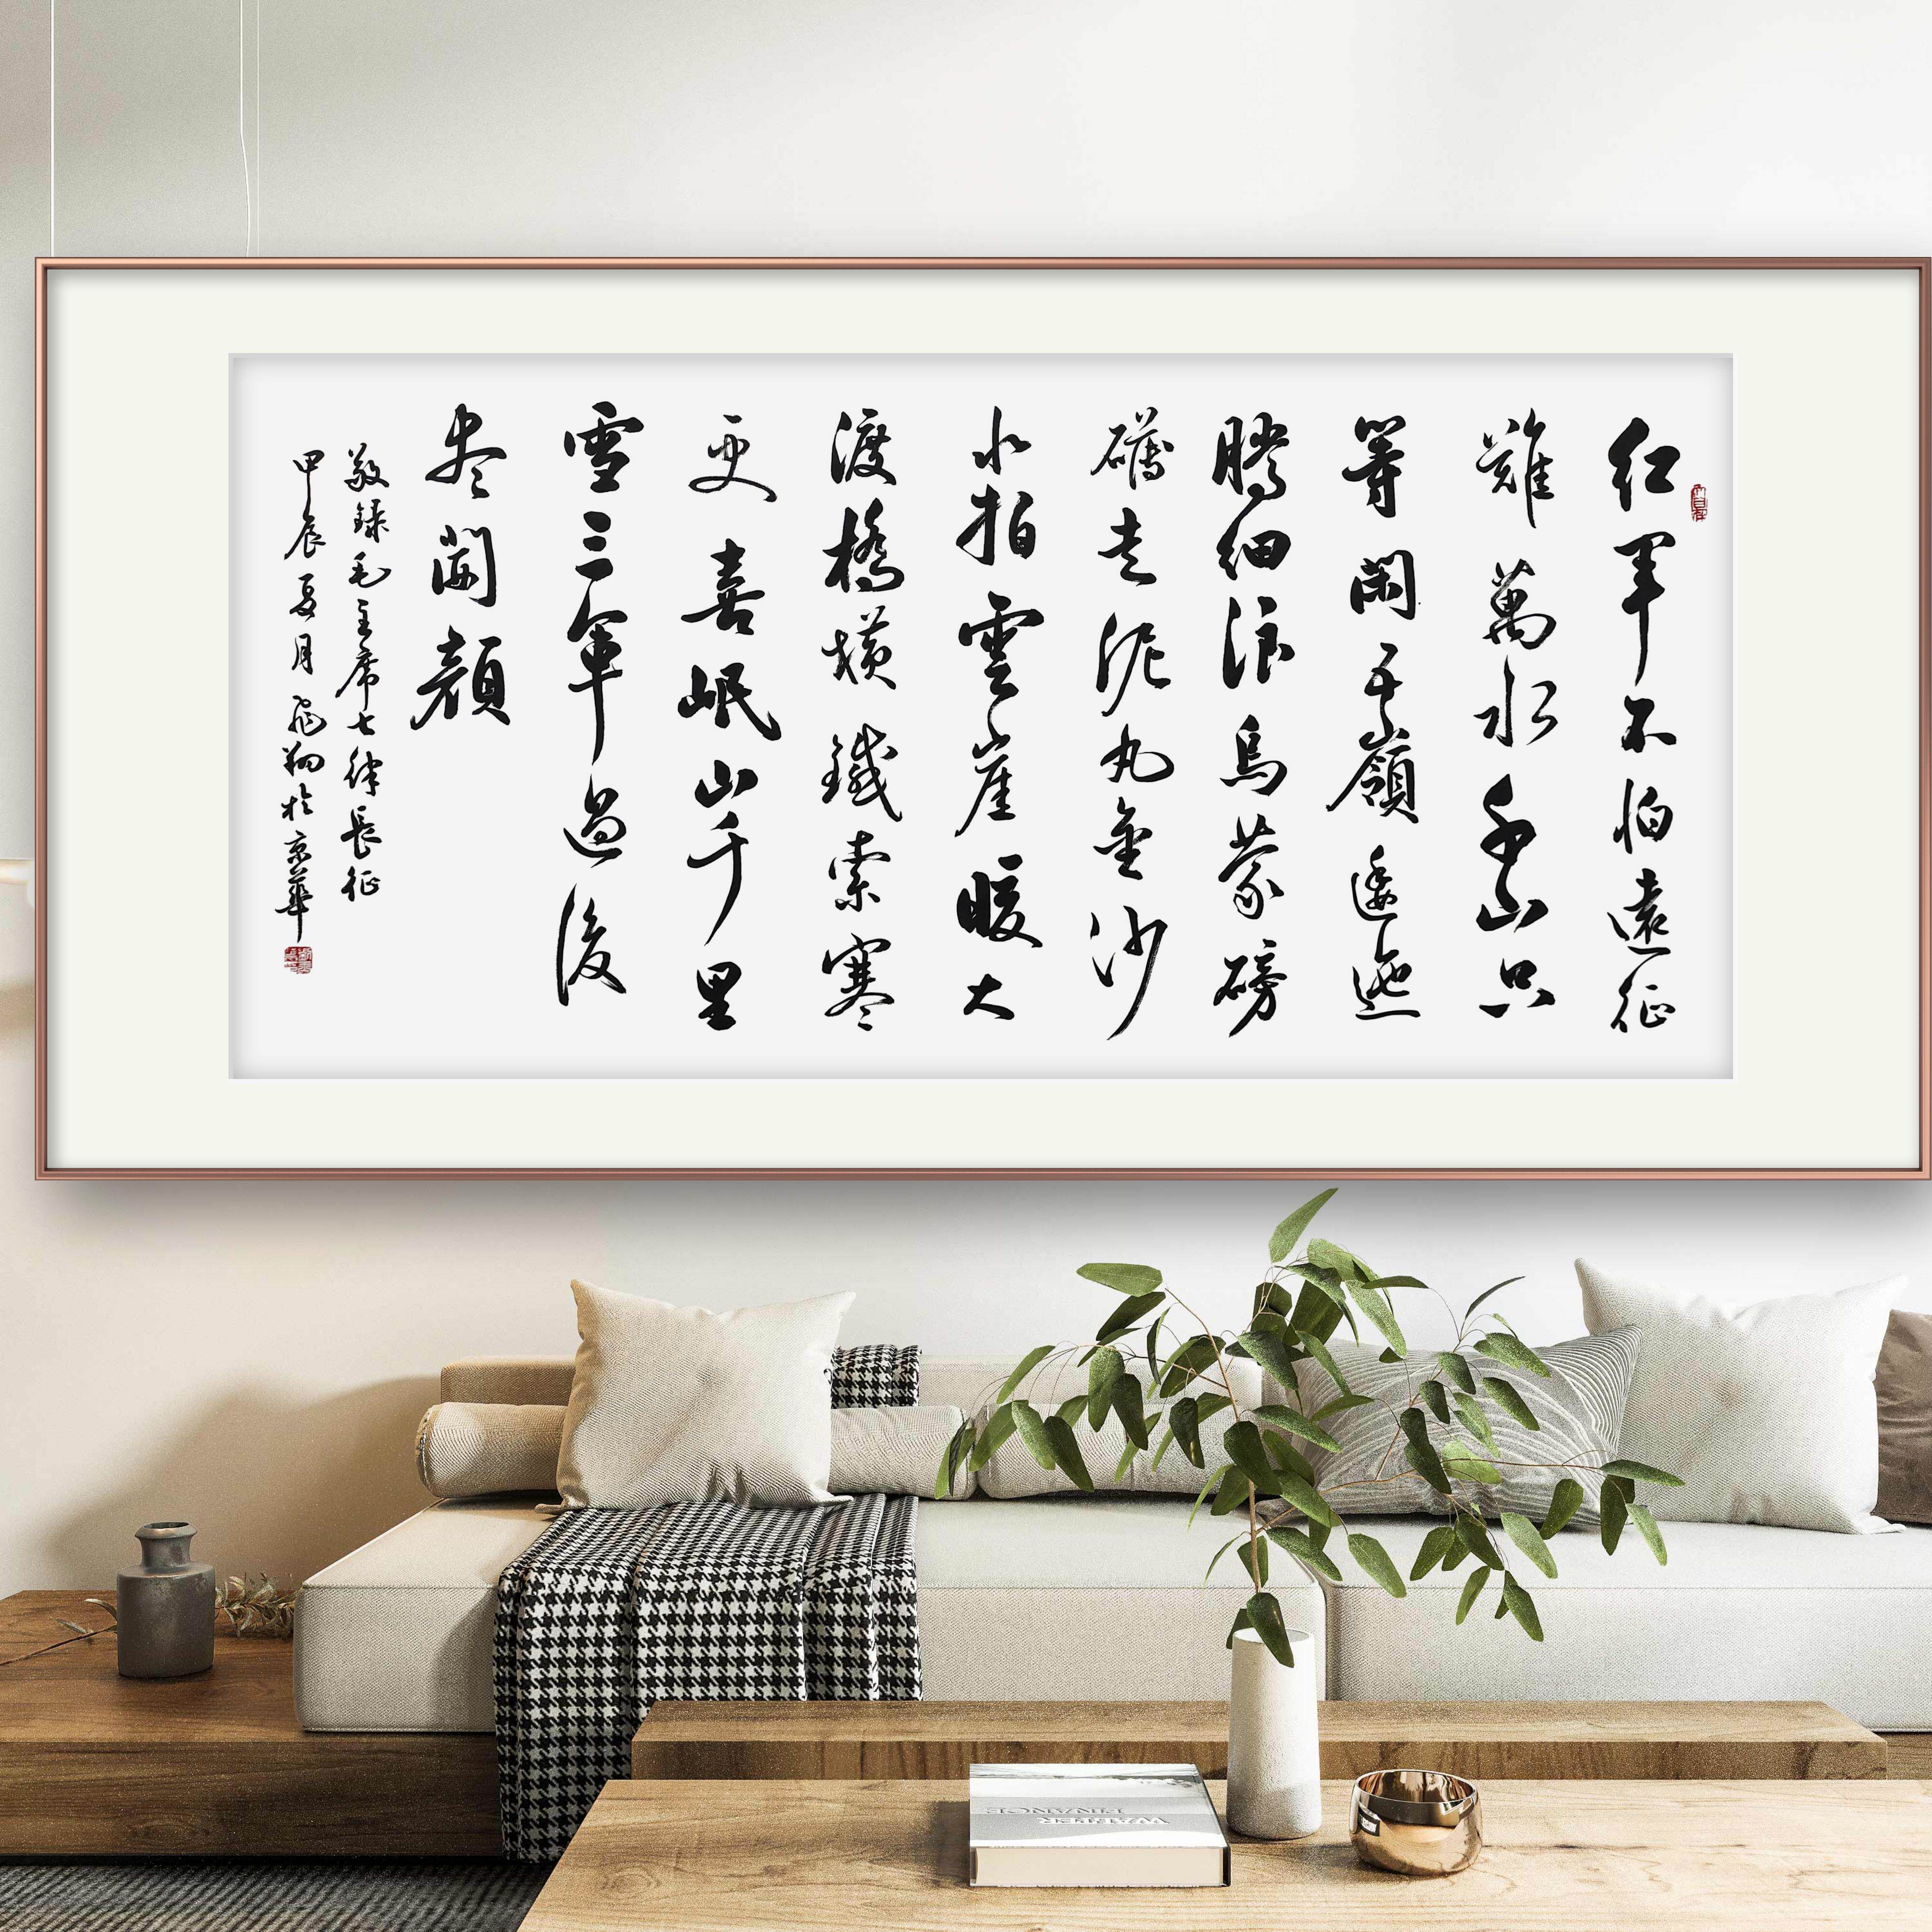 红軍不怕遠征
難萬水千山只
等閑五嶺逶迤
騰細浪烏蒙磅
礴走泥丸金沙
水拍雲崖暖大
渡橋橫鐵索寒
更喜岷山千里
雪三軍過後
尽開顏
敬録毛主席七律長征
甲辰夏月飛翔於京華